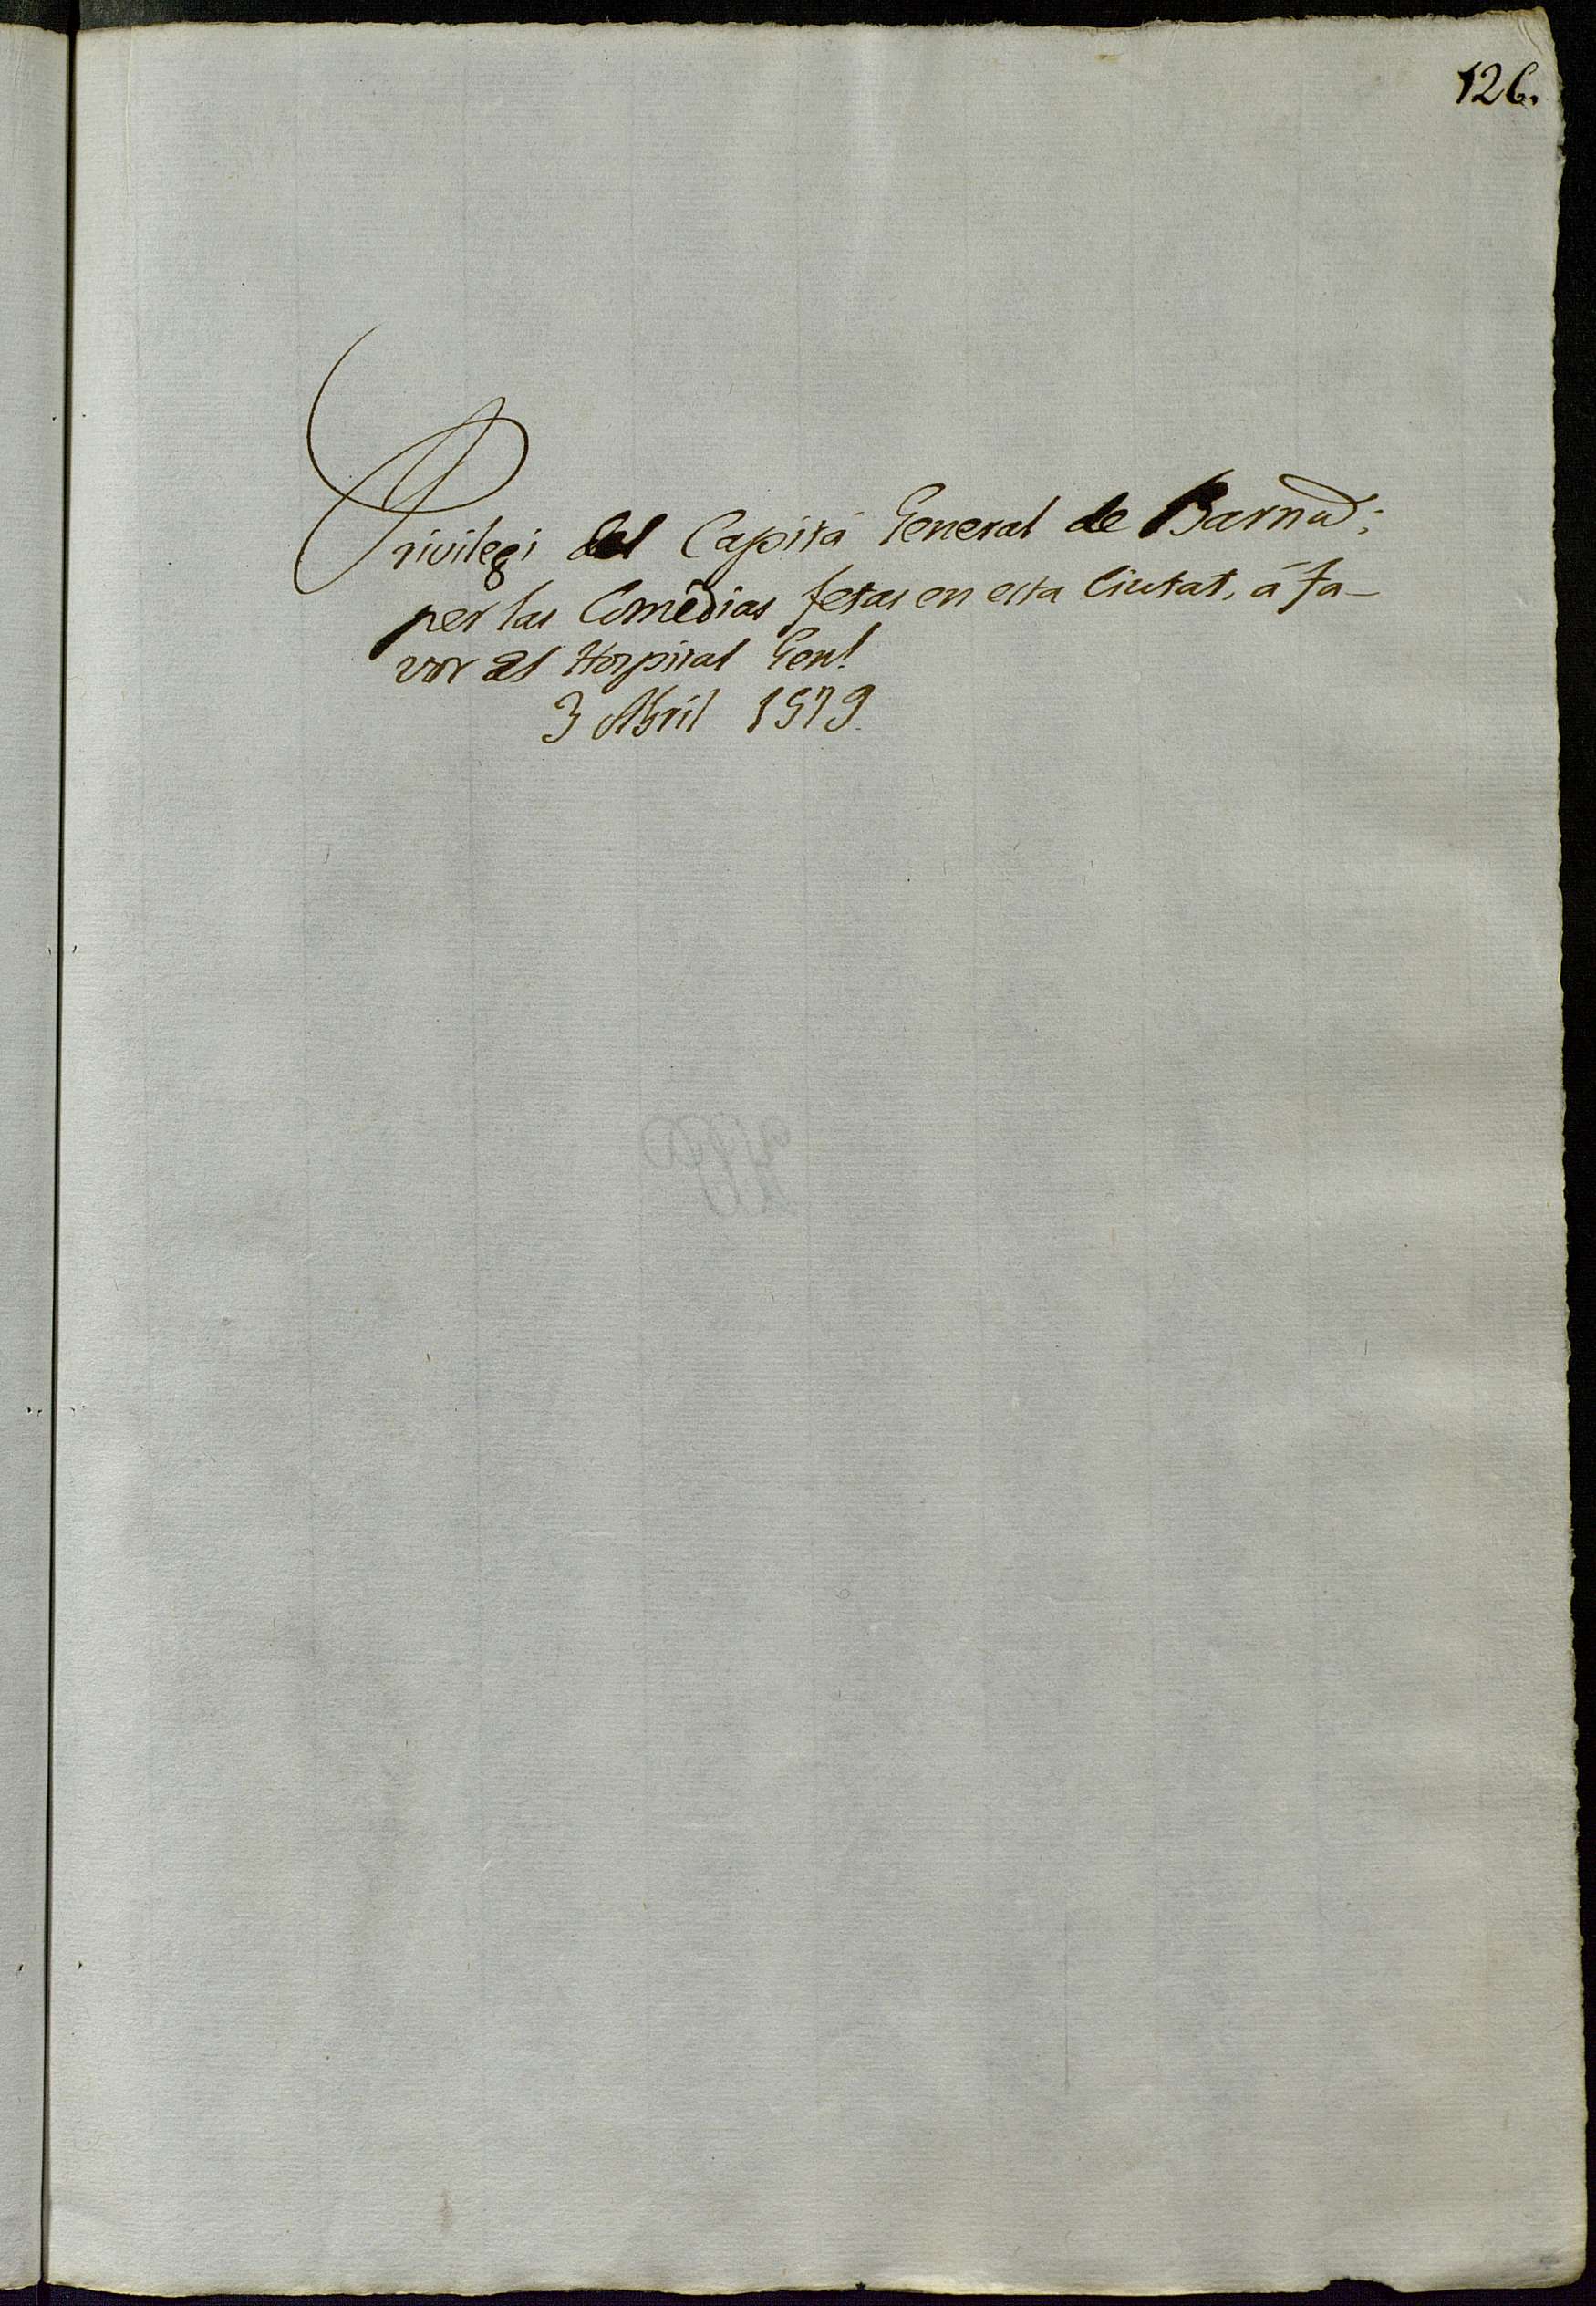 126.
Privilegi del Capitá General de Barna;
per las Comedias fetas en esta Ciutat, á fa-
vor del Hospital Genl
3 Abril 1579.